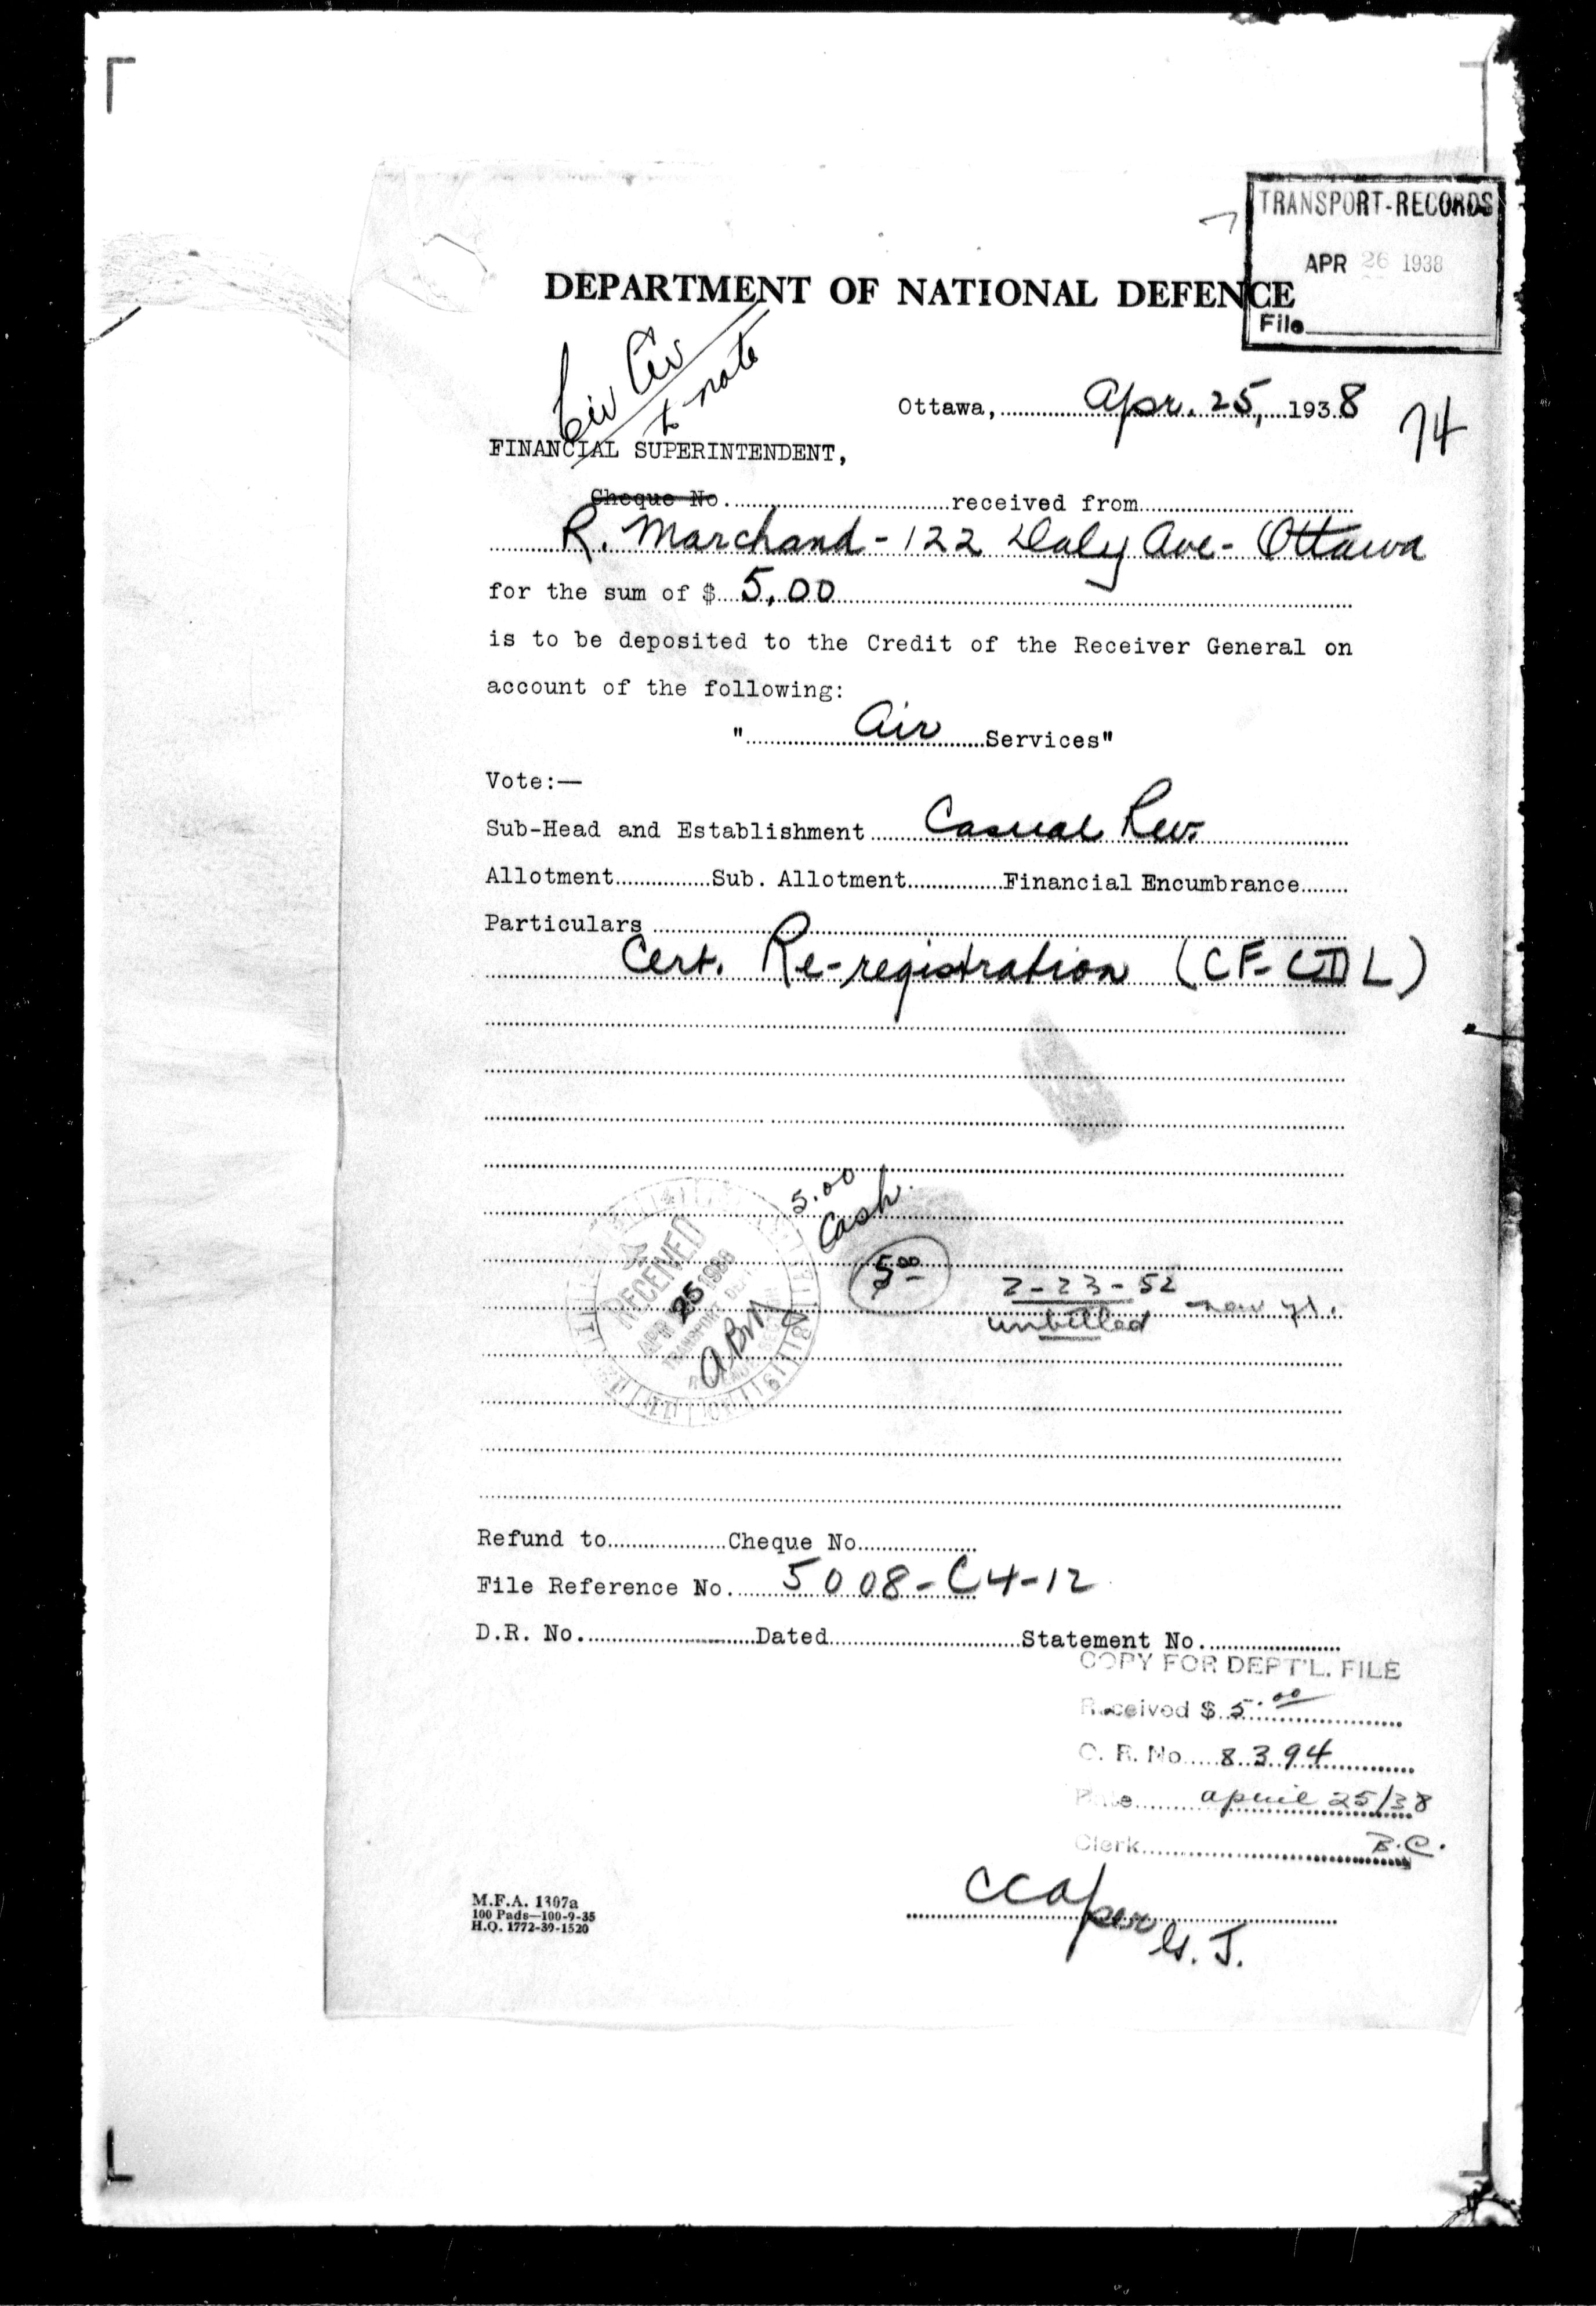 TRANSPORT-RECORDS
APR 26 1938
File
DEPARTMENT OF NATIONAL DEFENCE
to note
Ottawa, Apr. 25, 1938
74
FINANCIAL SUPERINTENDENT,
Cheque No. received from
R. Marchand - 122 Daly Ave - Ottawa
for the sum of $ 5.00
is to be deposited to the Credit of the Receiver General on
account of the following:
" Air Services"
Vote:—
Sub-Head and Establishment Casual Rev.
Allotment Sub. Allotment Financial Encumbrance
Particulars
Cert. Re-registration (CF-CDL)
5.00
Cash.
RECEIVED
APR 25 1938
TRANSPORT DEPT
ABM
5 00
2-23-52
unbilled new yr.
Refund to Cheque No.
File Reference No. 5008-C4-12
D.R. No. Dated Statement No.
COPY FOR DEPT'L. FILE
Received $ 5.00
C. R. No. 8394
Date April 25/38
Clerk B.C.
M.F.A. 1307a
100 Pads—100-9-35
H.Q. 1772-39-1520